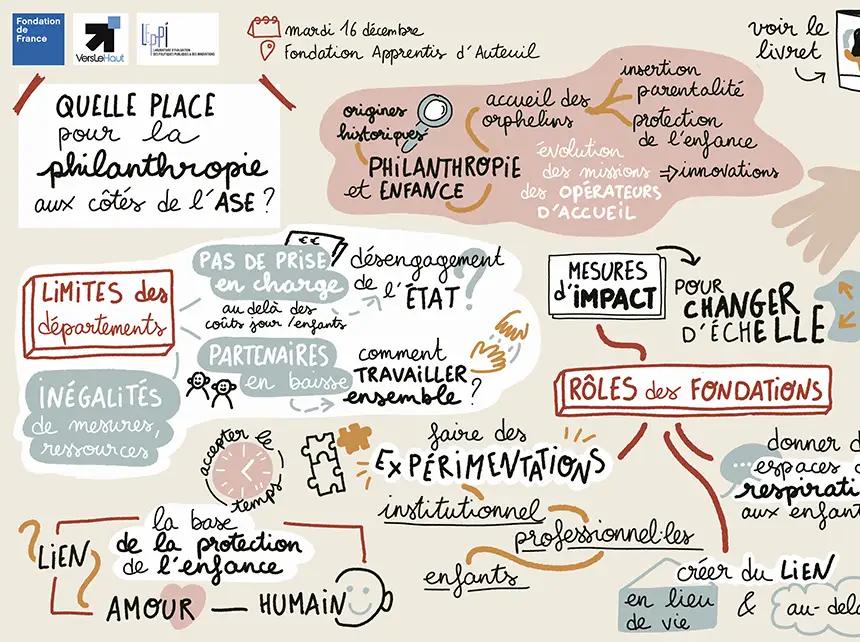 Fondation
de
France
VersLeHaut
LEPPI
LABORATOIRE D'ÉVALUATION
DES POLITIQUES PUBLIQUES & DES INNOVATIONS
mardi 16 décembre
Fondation Apprentis d'Auteuil
voir le
livret
QUELLE PLACE
pour la
philanthropie
aux côtés de l'ASE ?
origines
historiques
PHILANTHROPIE
et ENFANCE
accueil des
orphelins
insertion
parentalité
protection
de l'enfance
évolution
des missions
des OPÉRATEURS
D'ACCUEIL
⇒ innovations
LIMITES des
départements
€€
PAS DE PRISE
en charge
au delà des
coûts jour/enfants
désengagement
de
l'ÉTAT ?
PARTENAIRES
en baisse
comment
TRAVAILLER
ensemble ?
INÉGALITÉS
de mesures,
ressources
MESURES
d'IMPACT
POUR
CHANGER
D'ÉCHELLE
RÔLES des FONDATIONS
accepter le
temps
faire des
EXPÉRIMENTATIONS
institutionnel
professionnel·les
enfants
donner d
espaces
respirati
aux enfant
créer du LIEN
en lieu
de vie
&
au-delà
la base
de la protection
de l'enfance
LIEN
AMOUR — HUMAIN